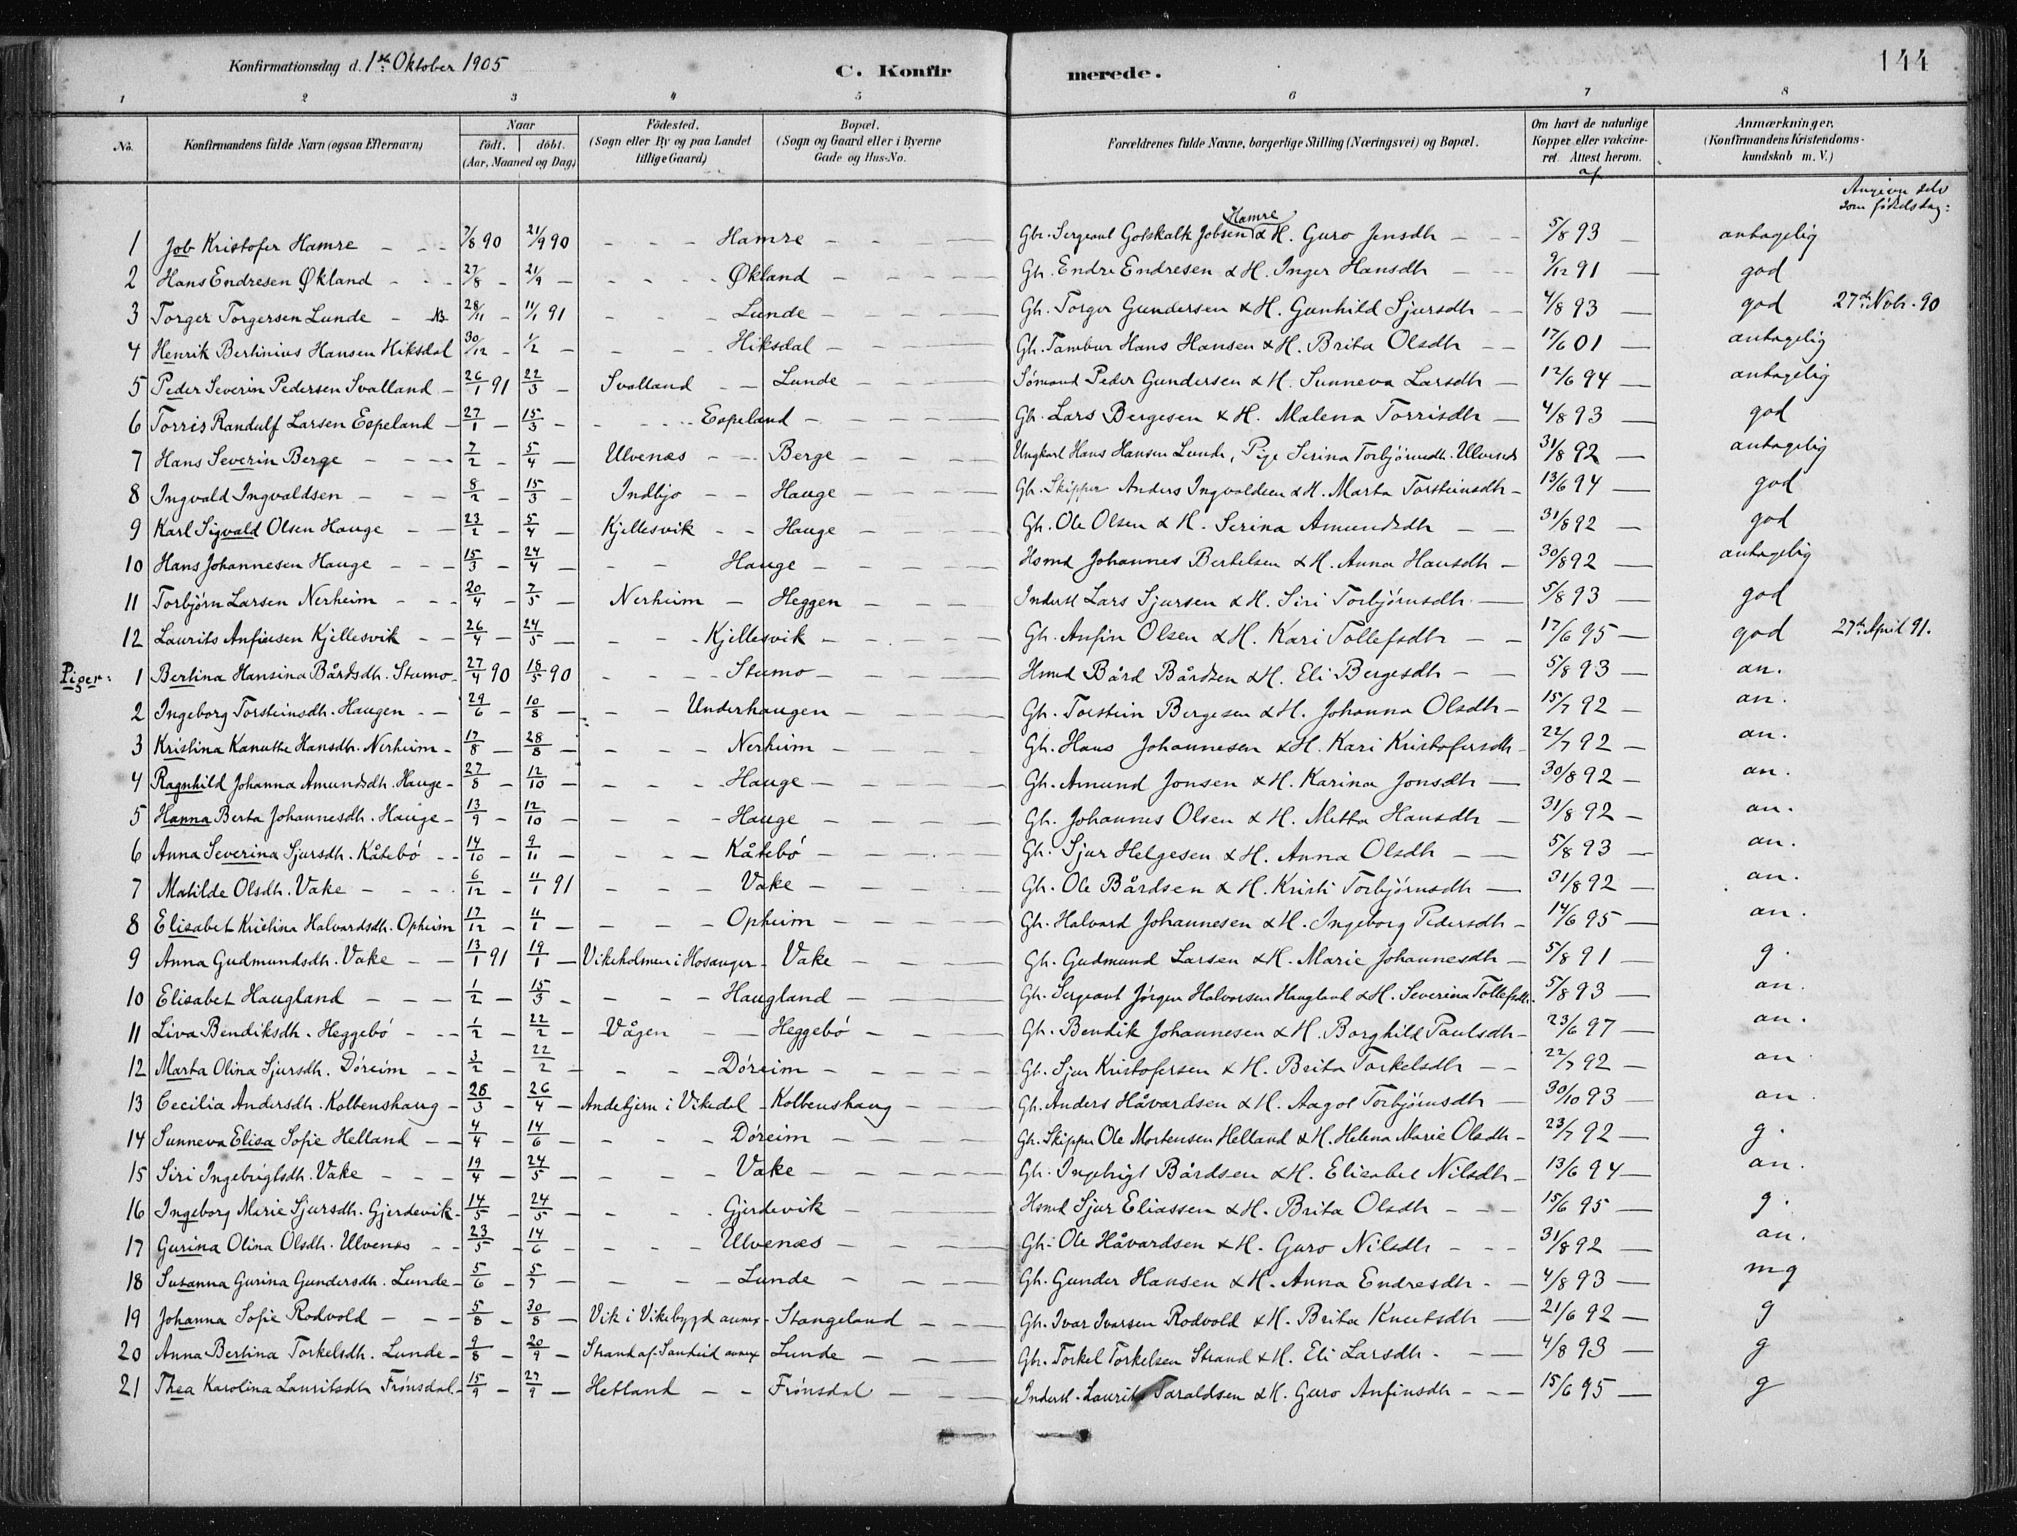 Konfirmationsdag d. 1ste Oktober 1905 C. Konfirmerede. 144
1 2 3 4 5 6 7 8
No. Konfirmandens fulde Navn (ogsaa Efternavn) Naar født. døbt. (Aar, Maaned og Dag) Fødested. (Sogn eller By og paa Landet tillige Gaard) Bopæl. (Sogn og Gaard eller i Byerne Gade og Hus-No.) Forældrenes fulde Navne, borgerlige Stilling (Næringsvei) og Bopæl. Om havt de naturlige Kopper eller vakcineret. Attest herom. af Anmærkninger. (Konfirmandens Kristendomskundskab m. V.)
Angiven selv som fødselsdag:
1 Job Kristofer Hamre - - - 7/8 90 21/9 90 - - - Hamre - - - Gbr. Sergeant Gotskalk Jobsen Hamre & H. Guro Jensdtr - - 5/8 93 - antagelig
2 Hans Endresen Økland - - - 27/8 - 21/9 - - - - Økland - - - Gb. Endre Endresen & H. Inger Hansdtr - - 9/12 91 - god
3 Torger Torgersen Lunde - NB 28/11 - 11/1 91 - - - Lunde - - - Gb. Torger Gundersen & H. Gunhild Sjursdtr - - 4/8 93 - god 27de Novbr. 90
4 Henrik Bertinius Hansen Hiksdal 30/12 - 1/2 - - - - Hiksdal - - - Gb. Tambur Hans Hansen & H. Brita Olsdtr - - 17/6 01 - antagelig
5 Peder Severin Pedersen Svalland - 26/1 91 22/3 - Svalland - - Lunde - - - Sømand Peder Gundersen & H. Sunneva Larsdtr - 12/6 94 - antagelig
6 Torris Randulf Larsen Espeland - 27/1 - 15/3 - - - - Espeland - - - Gb. Lars Bergesen & H. Malena Torrisdtr - 4/8 93 - god
7 Hans Severin Berge - - - 7/2 - 5/4 - Ulvenæs - - Berge - - - Ungkarl Hans Hansen Lunde, Pige Serina Torbjørnsdtr. Ulvenes 31/8 92 - antagelig
8 Ingvald Ingvaldsen - - - 8/2 - 15/3 - Indbjo - - Hauge - - - Gb. Skipper Anders Ingvaldsen & H. Marta Torsteinsdtr - 13/6 94 - god
9 Karl Sigvald Olsen Hauge - - 23/2 - 5/4 - Kjellesvik - - Hauge - - - Gb. Ole Olsen & H. Serina Amundsdtr - - 31/8 92 - god
10 Hans Johannesen Hauge - - - 15/3 - 24/4 - - - Hauge - - - Hsmd Johannes Bertelsen & H. Anna Hansdtr - 30/8 92 - antagelig
11 Torbjørn Larsen Nerheim - - - 20/4 - 7/5 - Nerheim - Heggen - - - Inderst Lars Sjursen & H. Siri Torbjørnsdtr - 5/8 93 - god
12 Laurits Anfinsen Kjellesvik - - 26/4 - 24/5 - - - - Kjellesvik - - - Gb. Anfin Olsen & H. Kari Tollefsdtr - - 17/6 95 - god 27de April 91.
Piger: 1 Bertina Hansina Bårdsdtr. Stumo - 27/4 90 18/5 90 - - - Stumo - - - Hsmd Bård Bårdsen & H. Eli Bergesdtr - - 5/8 93 - an.
2 Ingeborg Torsteinsdtr. Haugen - - 29/6 - 10/8 - - - Underhaugen - - - Gb. Torstein Bergesen & H. Johanna Olsdtr - 15/7 92 - an.
3 Kristina Kanutte Hansdtr. Nerheim - 17/8 - 28/8 - - - - Nerheim - - - Gb. Hans Johannesen & H. Kari Kristofersdtr - 22/7 92 - an.
4 Ragnhild Johanna Amundsdtr. Hauge - 27/8 - 12/10 - - - - Hauge - - - Gb. Amund Jonsen & H. Karina Jonsdtr - 30/8 92 - an.
5 Hanna Berta Johannesdtr. Hauge - 13/9 - 12/10 - - - - Hauge - - - Gb. Johannes Olsen & H. Metta Hansdtr - 31/8 92 - an.
6 Anna Severina Sjursdtr. Kåtebø - - 14/10 - 9/11 - - - - Kåtebø - - - Gb. Sjur Helgesen & H. Anna Olsdtr - - 5/8 93 - an.
7 Matilde Olsdtr. Vake - - - 6/12 - 11/1 91 - - - Vake - - - Gb. Ole Bårdsen & H. Kristi Torbjørnsdtr - 31/8 92 - an.
8 Elisabet Kristina Halvardsdtr. Opheim 17/12 - 11/1 - - - - Opheim - - - Gb. Halvard Johannesen & H. Ingeborg Pedersdtr - 14/6 95 - an.
9 Anna Gudmundsdtr. Vake - - 13/1 91 19/1 - Vikeholmen i Hosanger - Vake - - - Gb. Gudmund Larsen & H. Marie Johannesdtr - 5/8 91 - g.
10 Elisabet Haugland - - - 1/2 - 15/3 - - - - Haugland - - - Gb. Sergeant Jørgen Halvorsen Haugland & H. Severina Tollefsdtr. 5/8 93 - an.
11 Liva Bendiksdtr. Heggebø - - - 1/2 - 22/2 - Vågen - - Heggebø - - - Gb. Bendik Johannesen & H. Borghild Paulsdtr - 23/6 97 - an.
12 Marta Olina Sjursdtr. Døreim - - 3/2 - 22/2 - - - - Døreim - - - Gb. Sjur Kristofersen & H. Brita Torkelsdtr - - 22/7 92 - an
13 Cecilia Andersdtr. Kolbenshaug - 28/3 - 26/4 - Andebjern i Vikedal - Kolbenshaug - - - Gb. Anders Håvardsen & H. Aagot Torbjørnsdtr - 30/10 93 - an
14 Sunneva Elisa Sofie Helland - - 4/4 - 14/6 - - - - Døreim - - - Gb. Skipper Ole Mortensen Helland & H. Helena Marie Olsdtr - 23/7 92 - g.
15 Siri Ingebrigtsdtr. Vake - - - 19/4 - 24/5 - - - - Vake - - - Gb. Ingebrigt Bårdsen & H. Elisabet Nilsdtr - 13/6 94 - an.
16 Ingeborg Marie Sjursdtr. Gjerdevik - 14/5 - 24/5 - - - - Gjerdevik - - - Hsmd Sjur Eliassen & H. Brita Olsdtr - - - 15/6 95 - g.
17 Gurina Olina Olsdtr. Ulvenæs - - 23/5 - 14/6 - - - - Ulvenæs - - - Gb. Ole Håvardsen & H. Guro Nilsdtr - - - 31/8 92 - an.
18 Susanna Gurina Gundersdtr. Lunde - 5/6 - 5/7 - - - - Lunde - - - Gb. Gunder Hansen & H. Anna Endresdtr. - - 4/8 93 - mg
19 Johanna Sofie Rodvold - - - 5/8 - 30/8 - Vik i Vikebygd annex - Stangeland - - - Gb. Ivar Ivarsen Rodvold & H. Brita Knutsdtr - 21/6 92 - g
20 Anna Bertina Torkelsdtr. Lunde - 9/8 - 20/9 - Strand af Sandeid annex Lunde - - - Gb. Torkel Torkelsen Strand & H. Eli Larsdtr. - - 4/8 93 - g
21 Thea Karolina Lauritsdtr Frønsdal. - 15/9 - 27/9 - Hetland - - Frønsdal - - - Inderst. Laurits Taraldsen & H. Guro Anfinsdtr - - - 15/6 95 - g